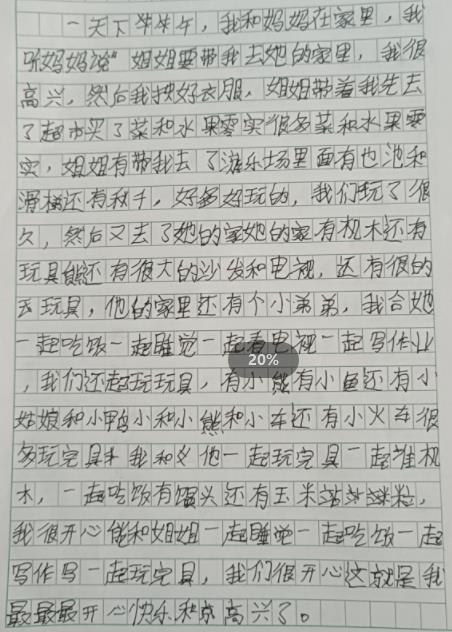 一天下午,我和妈妈在家里,我
听妈妈说"姐姐要带我去她的家里,我很
高兴,然后我换好衣服,姐姐带着我先去
了超市买了菜和水果零实很多菜和水果零
实,姐姐有带我去了游乐场里面有也池和
滑梯还有秋千,好多好玩的,我们玩了很
久,然后又去了她的家她的家有机木还有
玩具熊还有很大的沙发和电视,还有很的
玩具,他的家里还有个小弟弟,我合她
一起吃饭一起睡觉一起看电视一起写作业
,我们还起玩玩具,有小熊有小鱼还有小
姑娘和小鸭小和小熊和小车还有小火车很
多玩完具 我和 他一起玩完具一起堆机
木,一起吃饭有馒头还有玉米 粒,
我很开心能和姐姐一起睡觉一起吃饭一起
写作写一起玩完具,我们很开心这就是我
最最最开心快乐和 高兴了。
20%